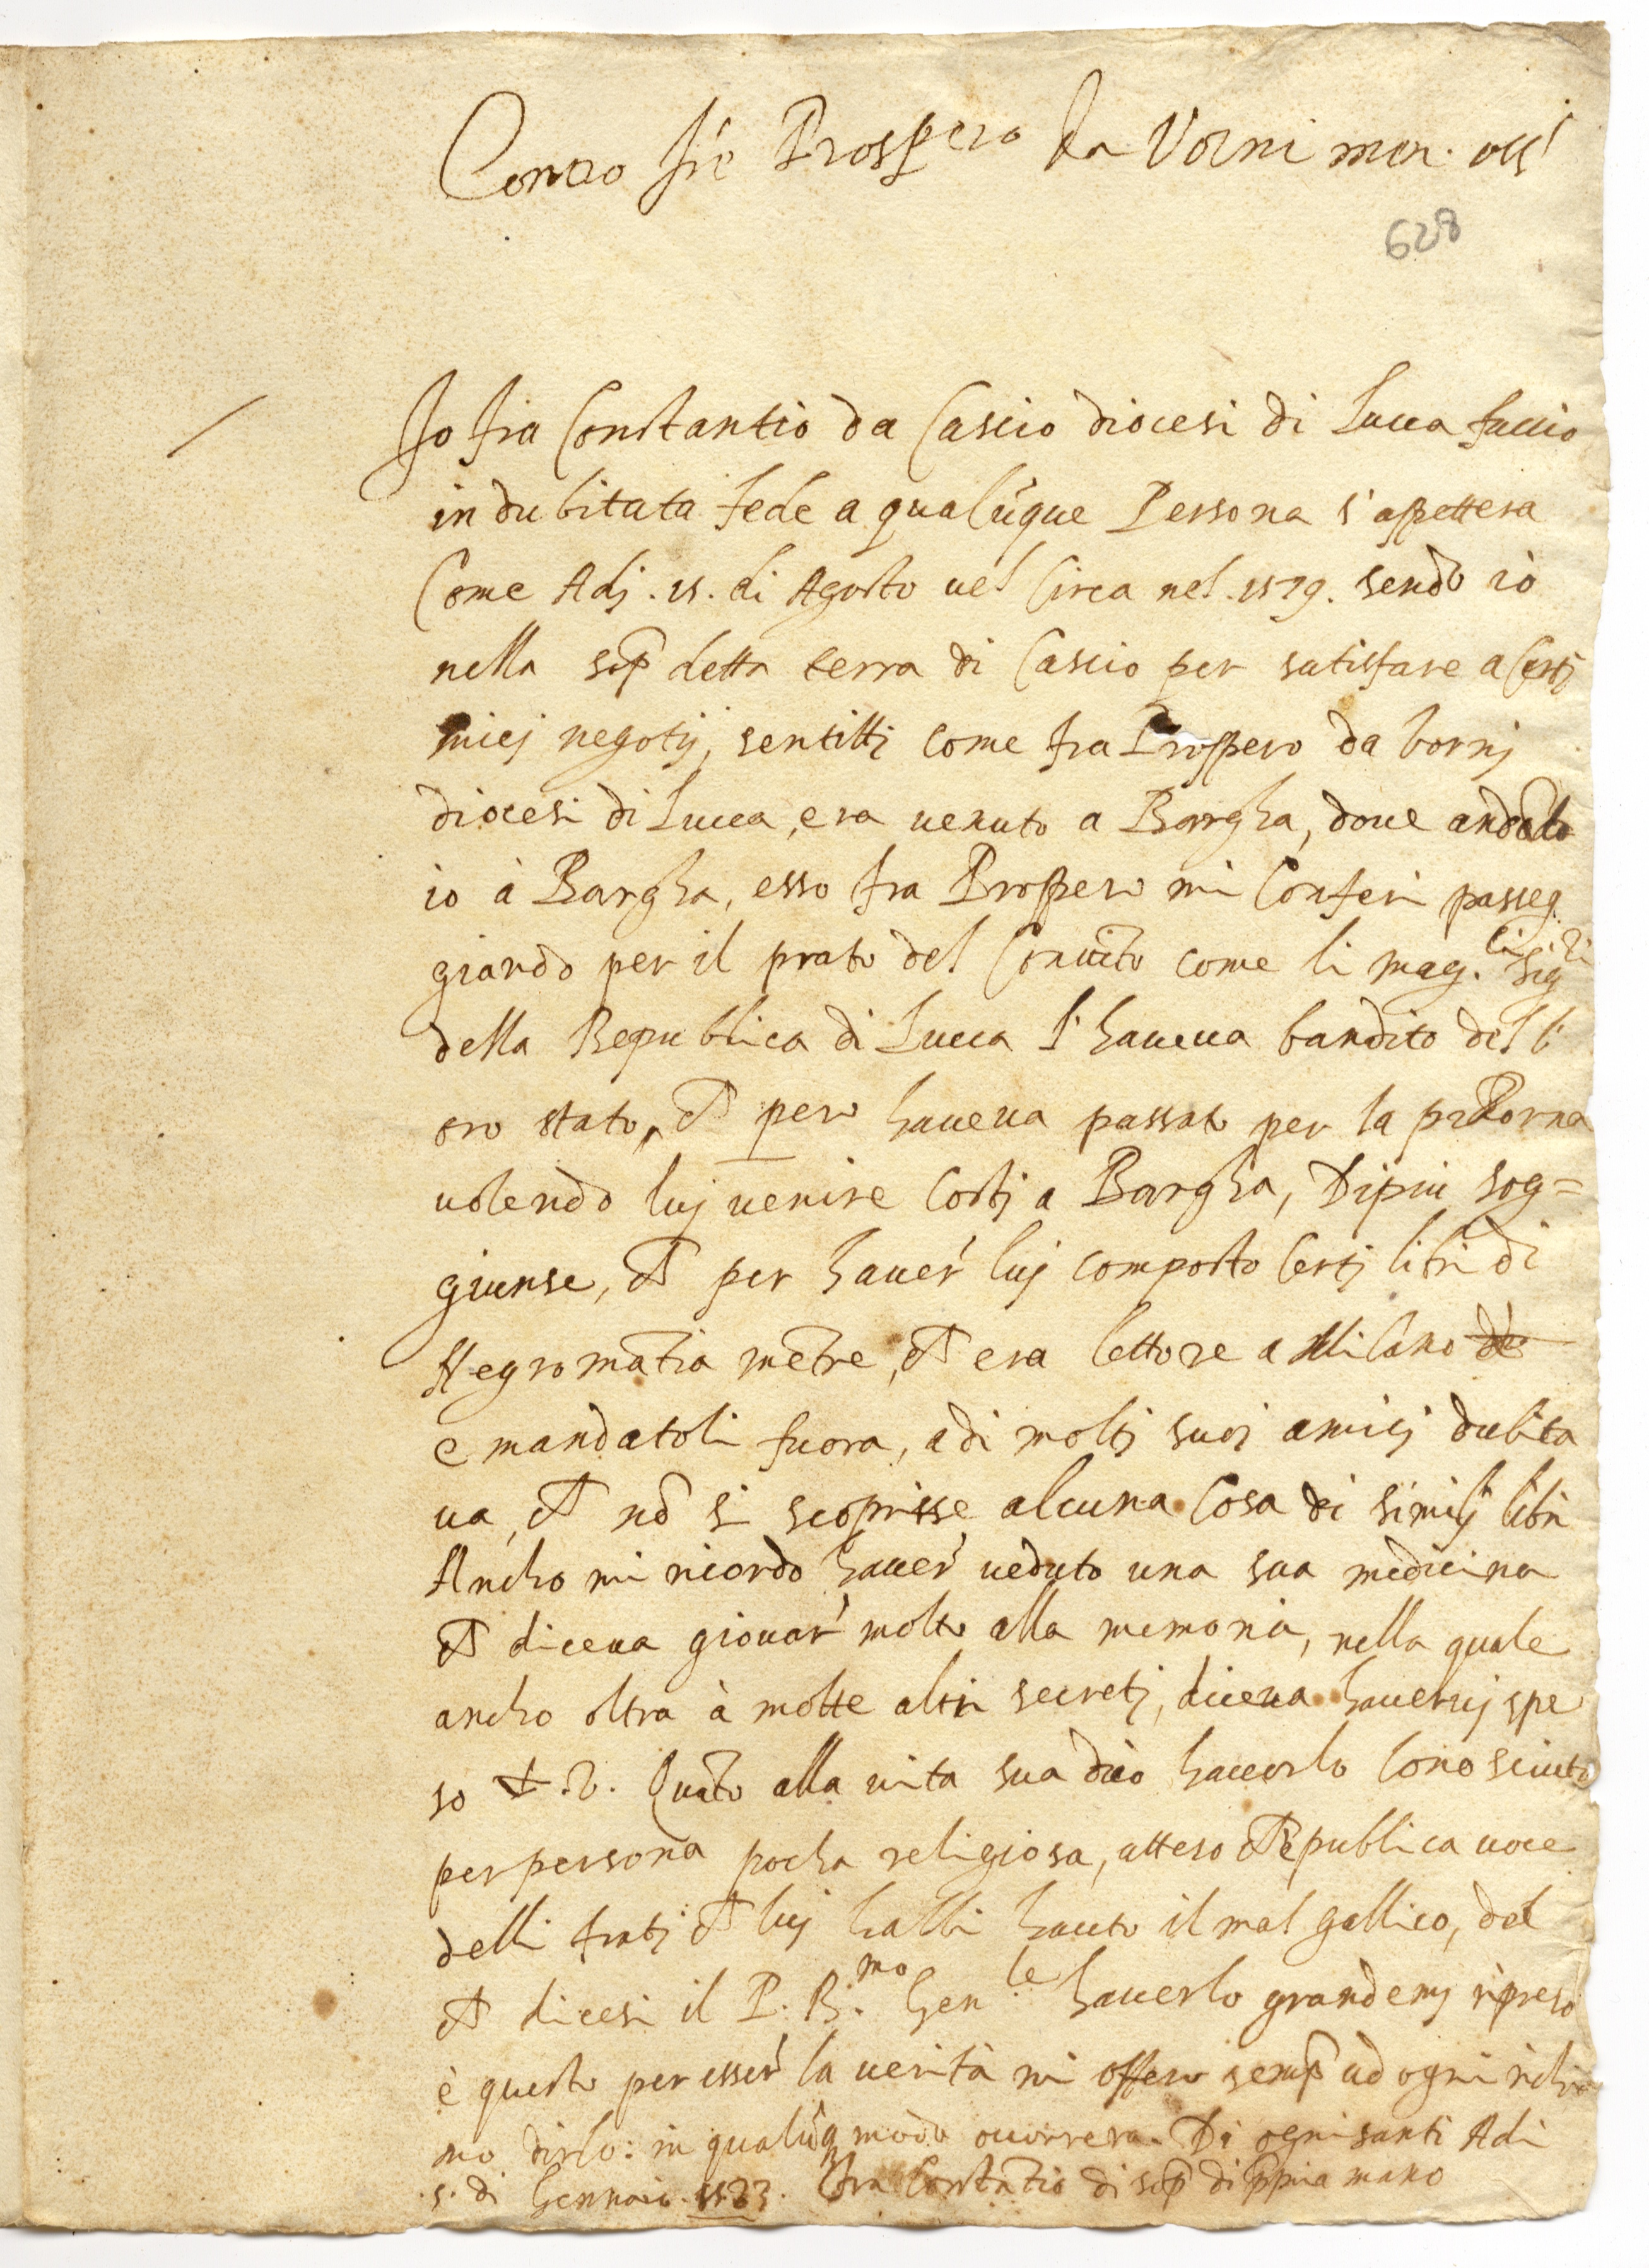 Contro frà Prospero da Vorni min. oss.
628
Io fra Constantio da Cascio diocesi di Lucca faccio
indubitata fede a qualũque Persona s'aspettera
Come Adj. 15. di Agosto vel Circa nel. 1579. sendo iò
nella sop̃detta terra di Cascio per satisfare a Certj
miej negotij, sentittj come fra Prospero da bornj
diocesi di Lucca, era uenuto a Bargha, doue andato
io à Bargha, esso fra Prospero mi Conferi passeg
giando per il prato del Conuẽto come li mag.ci Sig.ri
della Republica di Lucca l'haueua bandito del l
oro stato, et pero haueua passato per la
uolendo luj uenire Costj a Bargha, Dipiu sog=
giunse, che per hauer luj composto Certj libri di
Negromãtia mẽtre, che era lettore a Milano
e mandatoli fuora, a di moltj suoj amicj dubita
ua, che nõ si scoprisse alcuna Cosa di similj libri
Ancho mi ricordo hauer ueduto una sua medicina
che diceua giouar molto alla memoria, nella quale
ancho oltra à molte altri secretj, diceua hauerujspe
so Quãto alla uita sua dico hauerlo Conosciuto
per persona pocha religiosa, atteso che è publica uoce
delli fratj che luj habbi hauto il mal gallico, del
che dicesi il P. R.mo Gen.le hauerlo grandemj ripreso
è questo per esser la uerità mi offero semp̃ ad ogni richia
mo dirlo: in qualũq modo occorrera. Di ogni santi Adi
.5. di Gennaio. Fra Cõstãtio di sop̃ di p̃pria mano